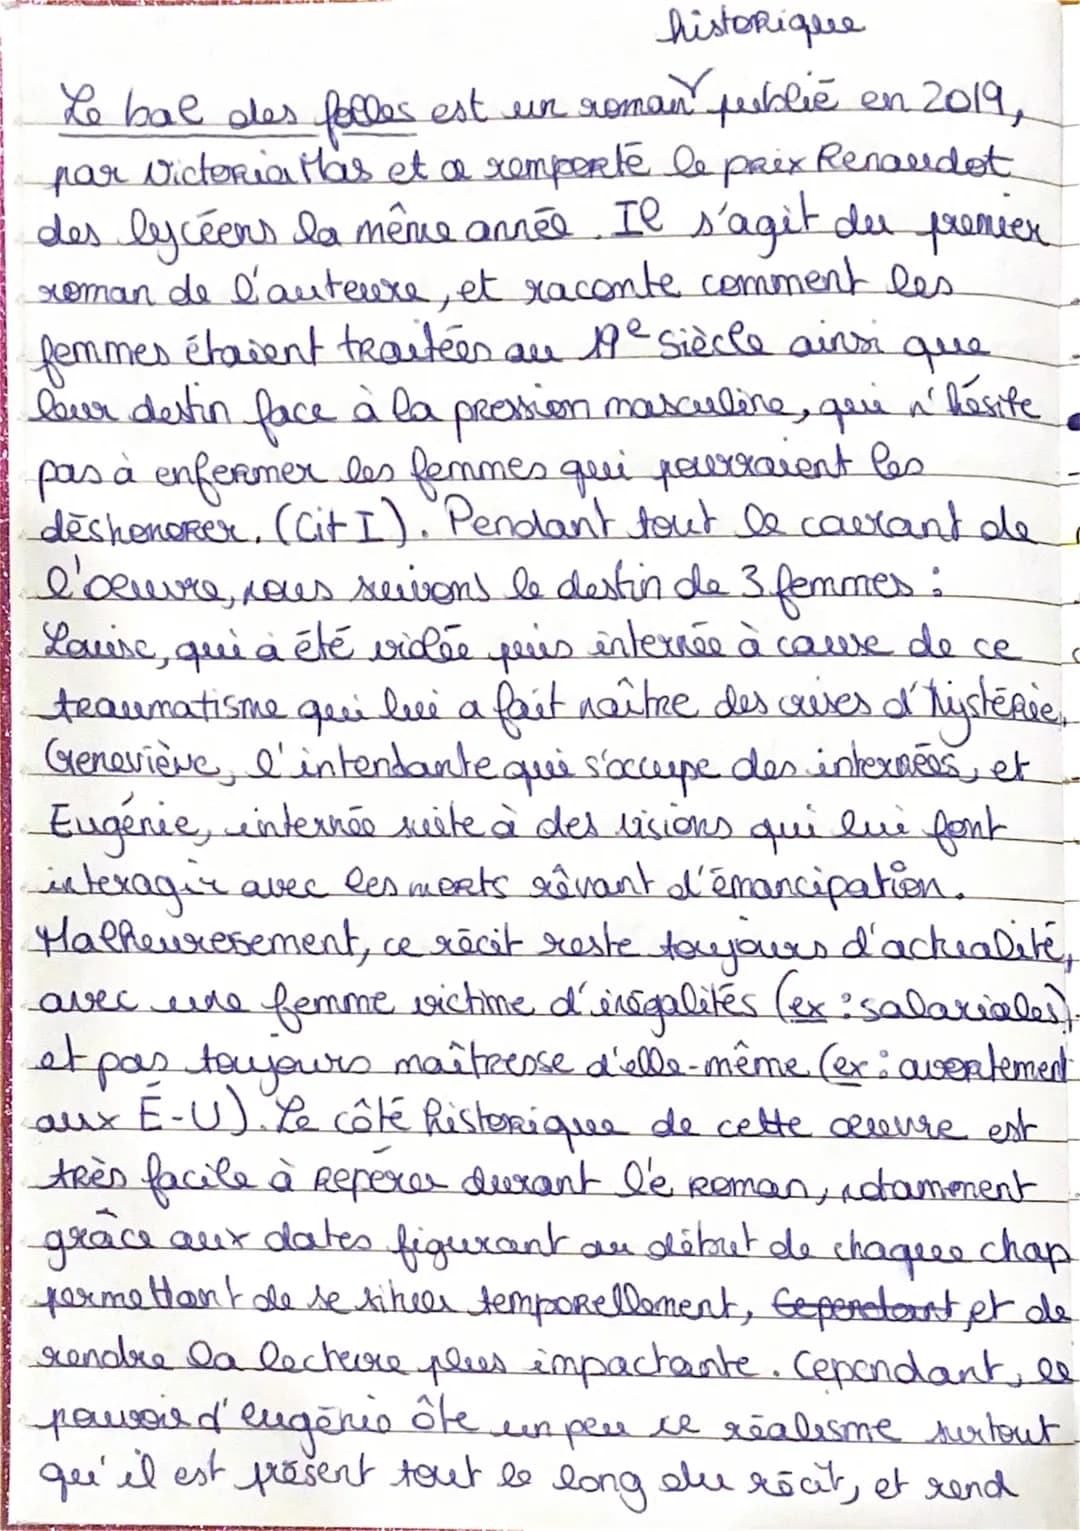 historique
Le bal des folles est un roman publié en 2019,
par Victoria Mas et a remporté le prix Renaudot
des lycéens la même année. Il s'agit du premier
roman de l'auteure, et raconte comment les
femmes étaient traitées au 19e siècle ainsi que
leur destin face à la pression masculine, qui n'hésite
pas à enfermer les femmes qui pourraient les
déshonorer. (Cit I). Pendant tout le courant de
l'oeuvre, nous suivons le destin de 3 femmes :
Louise, qui a été violée puis internée à cause de ce
traumatisme qui lui a fait naître des crises d'hystérie,
Geneviève, l'intendante qui s'occupe des internées, et
Eugénie, internée suite à des visions qui lui font
interagir avec les morts rêvant d'émancipation.
Malheureusement, ce récit reste toujours d'actualité,
avec une femme victime d'inégalités (ex : salariales)
et pas toujours maîtresse d'elle-même (ex : avortement
aux É-U). Le côté historique de cette oeuvre est
très facile à repérer durant le roman, notamment
grâce aux dates figurant au début de chaque chap
permettant de se situer temporellement, Cependant et de
rendre la lecture plus impactante. Cependant, le
pouvoir d'Eugénie ôte un peu ce réalisme surtout
qu'il est présent tout le long du récit, et rend